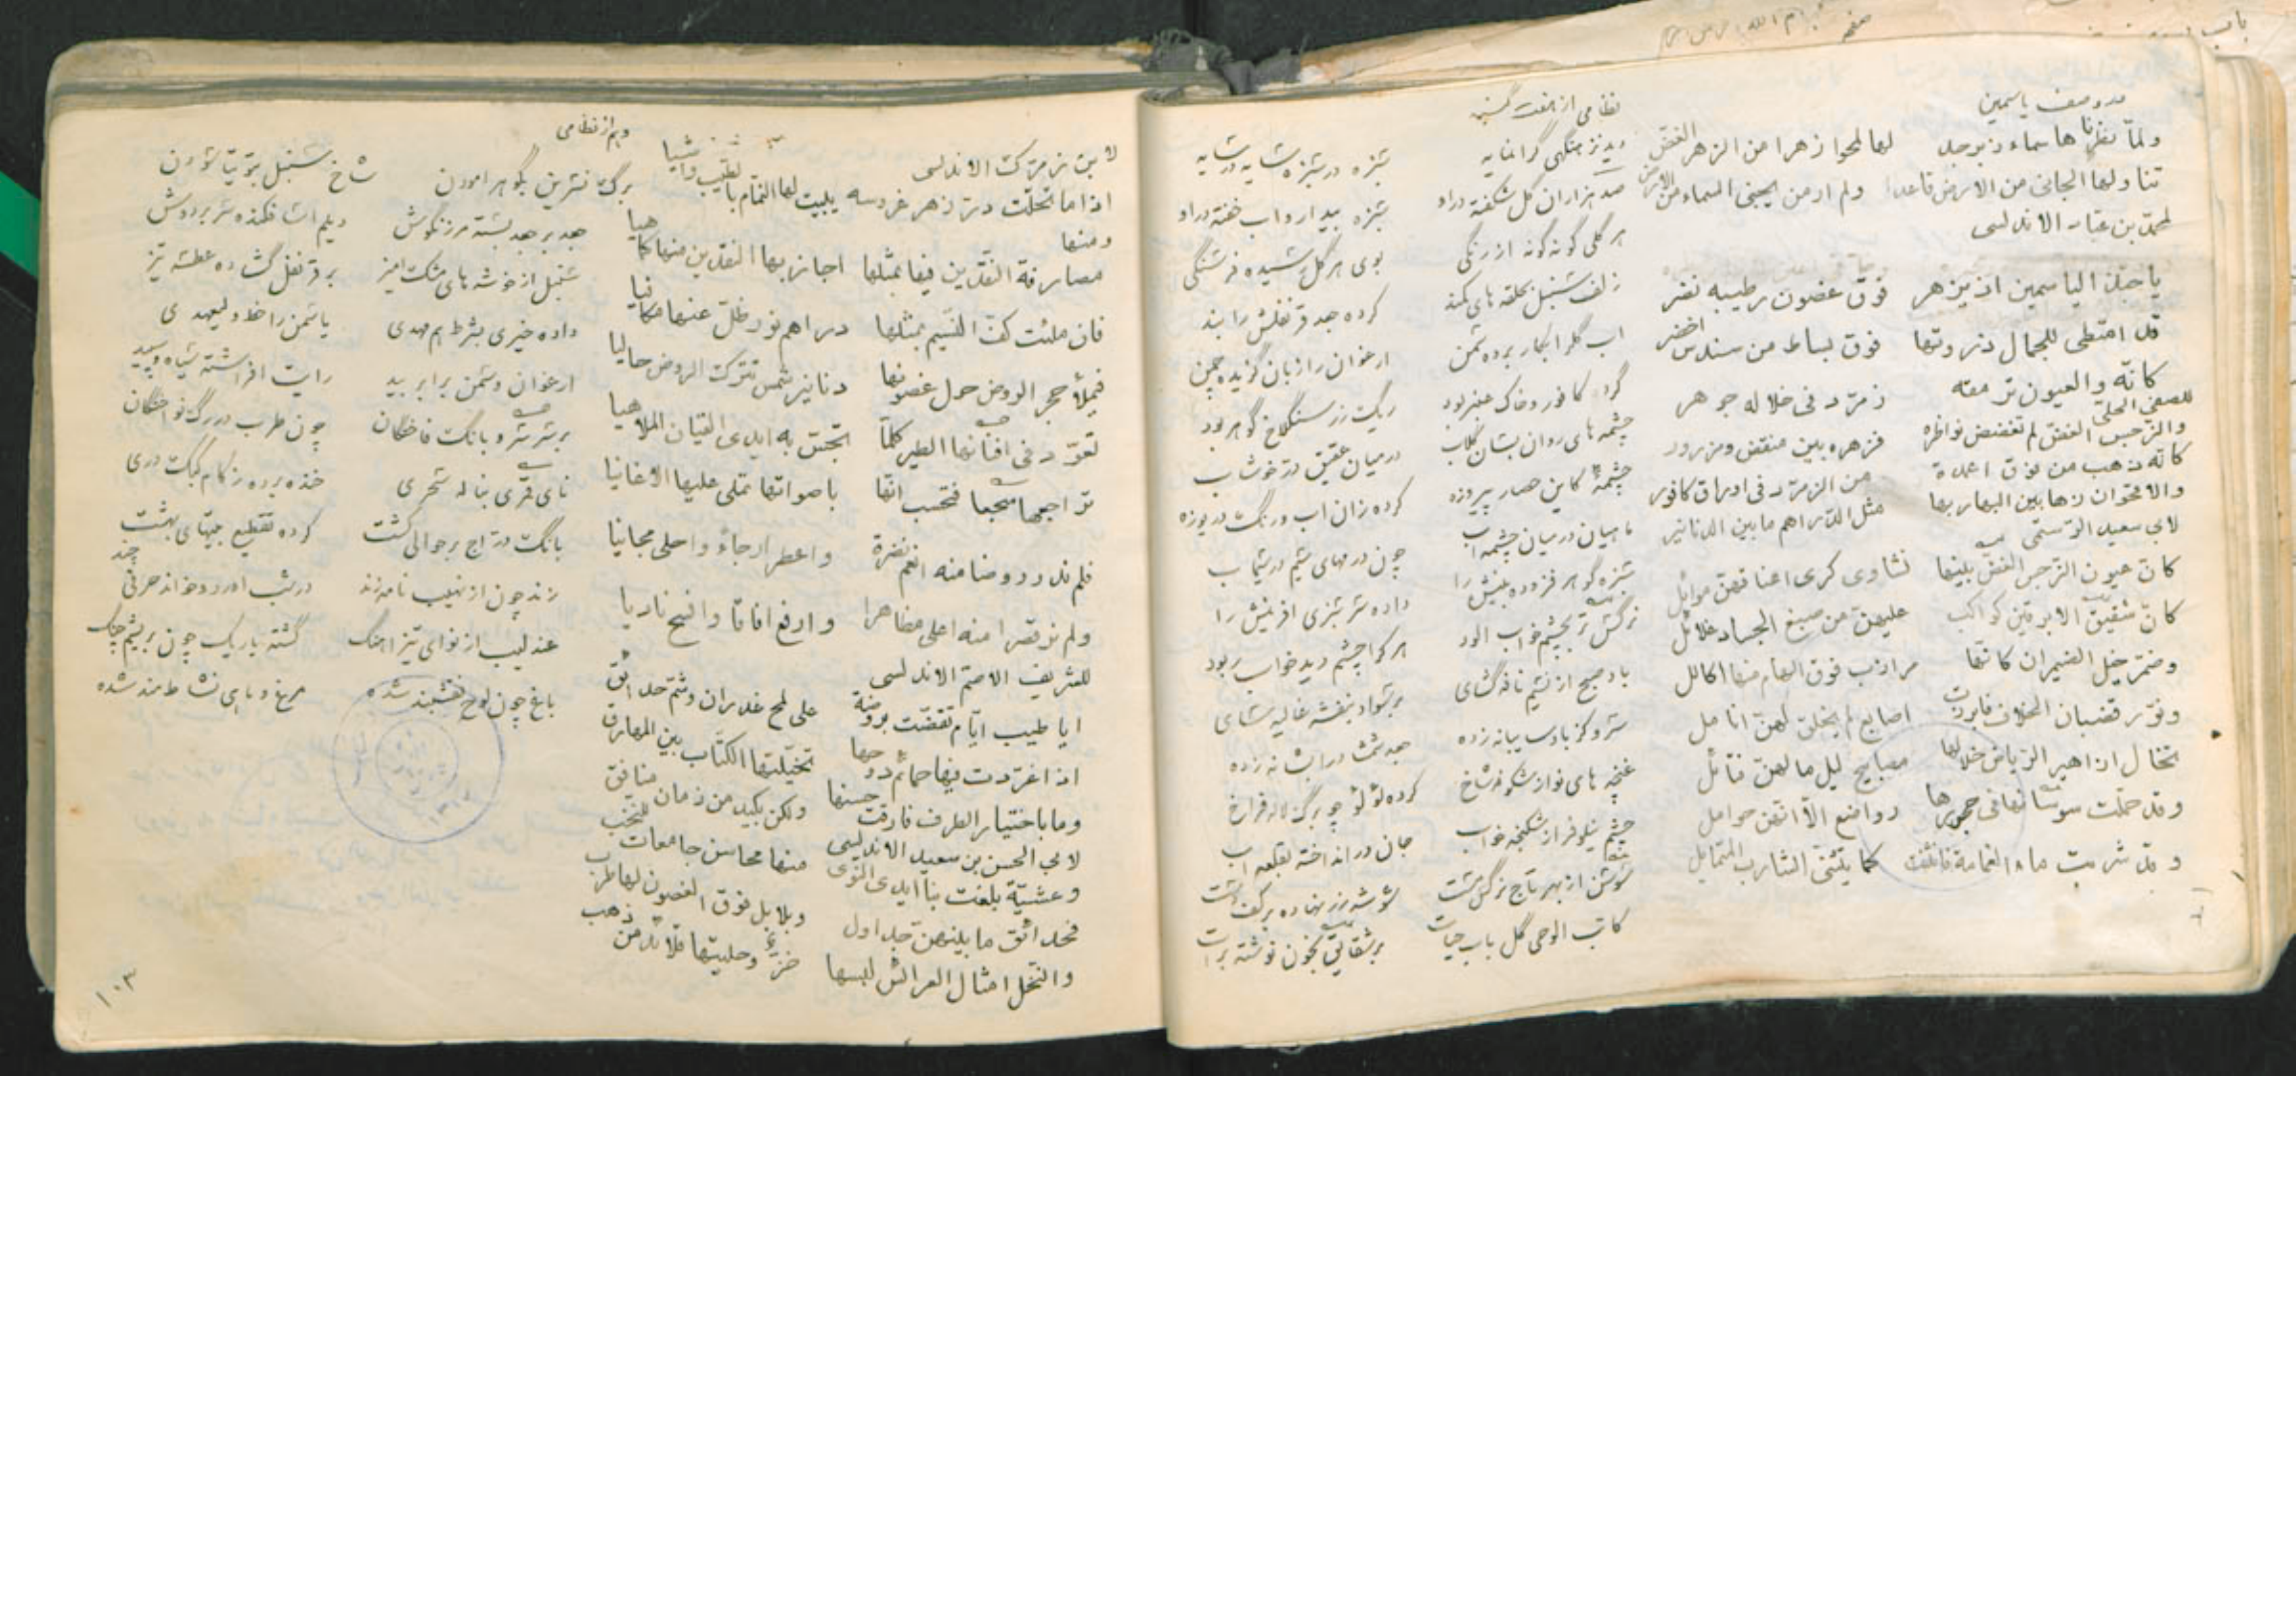 در وصف یاسمین
ولما نظرناها سماء زبرجد لها انجما زهرا من الزهر الغض
تناولها الجانی من الارض قاعدا ولم ار من یجنی السماء من الارض
لمحمد بن عباد الاندلسی
یا حبذا الیاسمین اذ یزهر فوق غصون رطیبه نضر
قد امتطی للجمال ذروتها فوق بساط من سندس اخضر
کانه والعیون ترمقه زمرد فی خلاله جوهر
للصفی الحلی
والنرجس الغض لم تغضض نواظره فزهره بین منقض ومزرور
کانه ذهب من فوق اعمدة من الزمرد فی اوراق کافور
والاقحوان زها بین البهار بها مثل الدراهم ما بین الدنانیر
لابی سعید الرستمی
کان عیون النرجس الغض بینها نشاوی کری اعناقهن موائل
کان شقیق الابرقین کواکب علیهن من صبغ الجساد غلائل
وضمر خیل الضیمران کانها مرازب فوق الهام منها اکالل
ونور قضبان الخلاف فابرزت اصابع لم یخلق لهن انامل
تخال ازاهیر الریاض خلالها مصابیح لیل ما لهن فتائل
وقد حملت سوسانها فی حجورها رواضع الا انهن حوامل
وقد شربت ماء الغمامة فانثنت کما یتثنی الشارب المتمایل
نظامی از هفت گنبد
دید نزهتگهی گرانمایه سبزه در سبزه سایه در سایه
صد هزاران گل شکفته در او سبزه بیدار و اب خفته در او
هر گلی گونه گونه از رنگی بوی هر گل رسیده فرسنگی
زلف سنبل بحلقه های کمند کرده جعد قرنفلش را بند
اب گل را بکار برده سمن ارغوان را زبان گزیده چمن
گرد کافور و خاک عنبر بود ریگ زر سنگلاخ گوهر بود
چشمه های روان بسان گلاب در میان عقیق و در خوشاب
چشمهٔ کاین حصار پیروزه کرده زان اب و رنگ دریوزه
ماهیان در میان چشمه اب چون درمهای سیم در سیماب
سبزه گوهر فزوده بینش را داده سرسبزی افرینش را
نرگس تر بچشم خواب الود هر کرا چشم دید خواب ربود
باد صبح از نسیم نافه گشای بر سواد بنفشه غالیه سای
سرو کز باد سایبانه زده جعد شمشاد را شانه زده
غنچه های نو از شکوفه شاخ کرده لؤلؤ چو برگ لاله فراخ
چشم نیلوفر از شکنجه خواب جان در انداخته بقلعه اب
سوسن از بهر تاج نرگس مست شوشه زر نهاده بر کف دست
کاتب الوحی گل باب حیات بر شقایق بخون نوشته برات
لابن زمرک الاندلسی
اذا ما تحلت در زهر غروسه یبیت لها النمام بالطیب واشیا
ومنها
مصارفة النقدین فیها بمثلها اجاز بها النقدین منها کما هیا
فان ملئت کف النسیم بمثلها دراهم نور ظل عنها مکافیا
فیملأ حجر الروض حول غصونها دنانیر شمس تترک الروض حالیا
تغرد فی افنانها الطیر کلما تجس به ایدی القیان الملاهیا
تراجعها سجعا فتحسب انها باصواتها تملی علیها الاغانیا
فلم ندر روضا منه انعم نضرة واعطر ارجاء واحلی مجانیا
ولم نر قصرا منه اعلی مظاهرا وارفع افاقا وافسح نادیا
للشریف الاصم الاندلسی
ایا طیب ایام تقضت بروضة علی لمح غدران وشم حدائق
اذا غردت فیها حمائم دوحها تخیلتها الکتاب بین المهارق
وما باختیار الطرف فارقت حسنها ولکن بکید من زمان منافق
لابی الحسن بن سعید الاندلسی
وعشیة بلغت بنا ایدی النوی منها محاسن جامعات للنخب
فحدائق ما بینهن جداول وبلابل فوق الغصون لها طرب
والنخل امثال العرائس لبسها خز وحلیتها قلائد من ذهب
وهم از نظامی
برگ نسرین بگوهر امودن شاخ سنبل بتوتیا سودن
جعد بر جعد بسته مرزنگوش دیلم اسا فکنده سر بر دوش
سنبل از خوشه های مشک امیز بر قرنفل گشاده عطسه تیز
داده خیری بشرط هم عهدی یاسمن را خط ولیعهدی
ارغوان و سمن برابر بید رایت افراشته سیاه و سپید
بر سر سرو بانگ فاختگان چون طرب در رگ نواختگان
نای قمری بناله سحری خنده برده ز کام کبک دری
بانگ دراج بر حوالی کشت کرده تقطیع بیتهای بهشت
زند چون از نهیب نامه زند در شب اورد و خواند حرفی چند
عندلیب از نوای تیز اهنگ گشته باریک چون بریشم چنگ
باغ چون لوح نقشبند شده مرغ و ماهی نشاط مند شده
۱۰۳